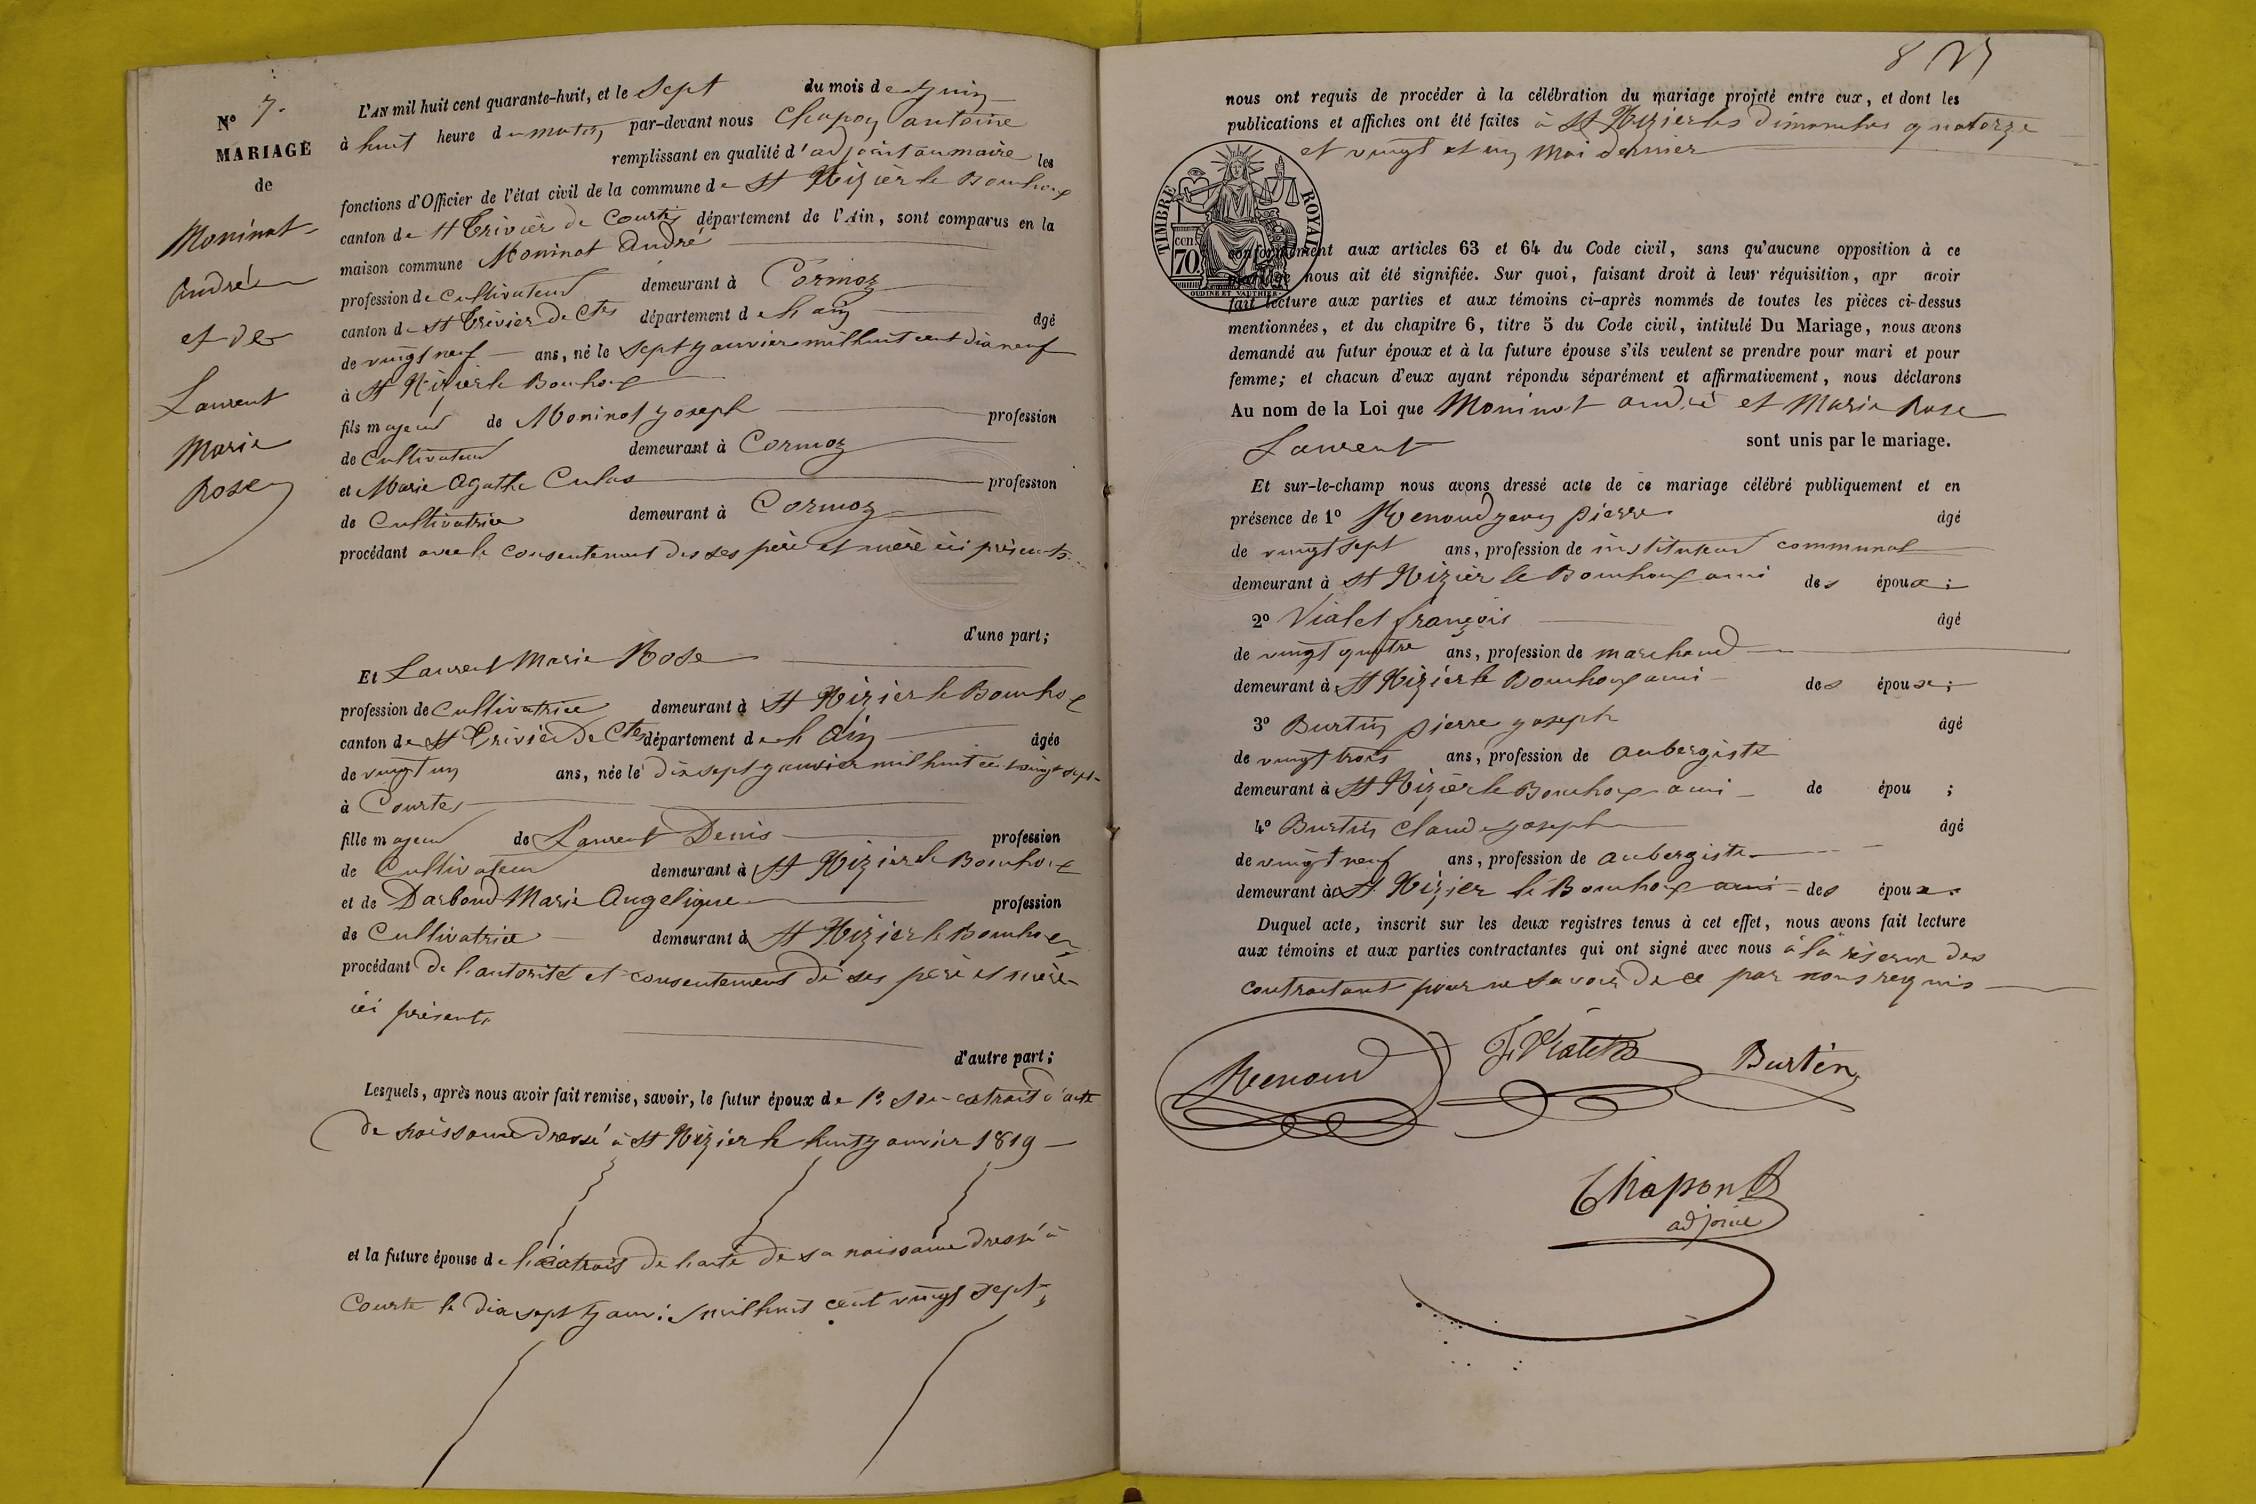 N° 7.
MARIAGE
de
Moninot
André
et de
Laurent
Marie
Rose
L'AN mil huit cent quarante-huit, et le sept du mois de juin
à huit heure du matin par-devant nous Chapon antoine
remplissant en qualité d'adjoint au maire les
fonctions d'Officier de l'état civil de la commune de St Nizier le Bouchoux
canton de St Trivier de Courtes département de l'Ain, sont comparus en la
maison commune Moninot André
profession de Cultivateur demeurant à Cormoz
canton de St Trivier de Ctes département de l'ain âgé
de vingt neuf ans, né le sept janvier mil huit cent dix neuf
à St Nizier le Bouchoux
fils majeur de Moninot joseph profession
de Cultivateur demeurant à Cormoz
et Marie Agathe Culas profession
de Cultivatrice demeurant à Cormoz
procédant avec le consentement des ses père et mère ici présents
d'une part;
Et Laurent Marie Rose
profession de Cultivatrice demeurant à St Nizier le Bouchoux
canton de St Trivier de Ctes département de l'Ain âgée
de vingt un ans, née le dix sept janvier mil huit cent vingt sept
à Courtes
fille majeur de Laurent Denis profession
de Cultivateur demeurant à St Nizier le Bouchoux
et de Darbond Marie Angelique profession
de Cultivatrice demeurant à St Nizier le Bouchoux
procédant de l'autorité et consentement de ses père et mère
ici présents
d'autre part;
Lesquels, après nous avoir fait remise, savoir, le futur époux de 1° son extrait d'acte
de naissance dressé à St Nizier le huit janvier 1819
et la future épouse de l'extrait de l'acte de sa naissance dressé à
Courte le dix sept janvier mil huit cent vingt sept
8
nous ont requis de procéder à la célébration du mariage projeté entre eux, et dont les
publications et affiches ont été faites à St Nizier les dimanches quatorze
et vingt et un mai dernier
TIMBRE ROYAL
cen. 70.
OUDINE ET VAUTHIER
conformément aux articles 63 et 64 du Code civil, sans qu'aucune opposition à ce
mariage nous ait été signifiée. Sur quoi, faisant droit à leur réquisition, apr avoir
fait lecture aux parties et aux témoins ci-après nommés de toutes les pièces ci-dessus
mentionnées, et du chapitre 6, titre 5 du Code civil, intitulé Du Mariage, nous avons
demandé au futur époux et à la future épouse s'ils veulent se prendre pour mari et pour
femme; et chacun d'eux ayant répondu séparément et affirmativement, nous déclarons
Au nom de la Loi que Moninot andré et Marie Rose
Laurent sont unis par le mariage.
Et sur-le-champ nous avons dressé acte de ce mariage célébré publiquement et en
présence de 1° Renoud jean pierre âgé
de vingt sept ans, profession de instituteur communal
demeurant à St Nizier le Bouchoux ami des époux;
2° Vialet françois âgé
de vingt quatre ans, profession de marchand
demeurant à St Nizier le Bouchoux ami des époux;
3° Burtin pierre joseph âgé
de vingt trois ans, profession de aubergiste
demeurant à St Nizier le Bouchoux ami de épou ;
4° Burtin Claude joseph âgé
de vingt neuf ans, profession de aubergiste
demeurant à St Nizier le Bouchoux ami des époux.
Duquel acte, inscrit sur les deux registres tenus à cet effet, nous avons fait lecture
aux témoins et aux parties contractantes qui ont signé avec nous à la réserve des
contractants pour ne savoir de ce par nous requis
Renoud
Burtin
Chapon
adjoint